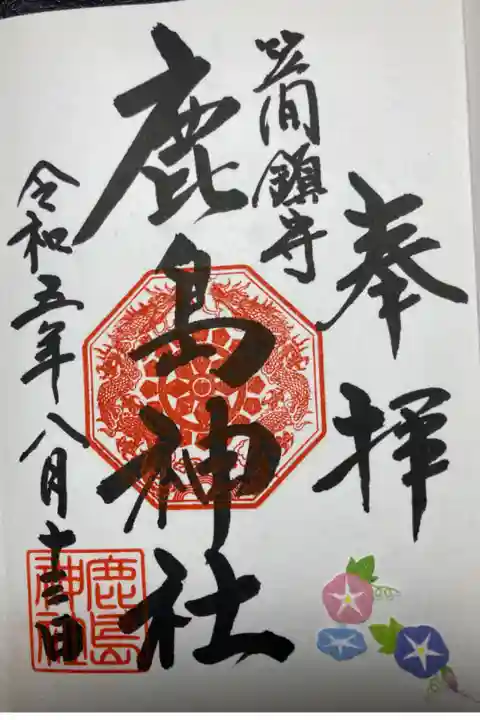 奉拝
笠間鎮守
鹿島神社
令和五年八月十三日
鹿島
神社